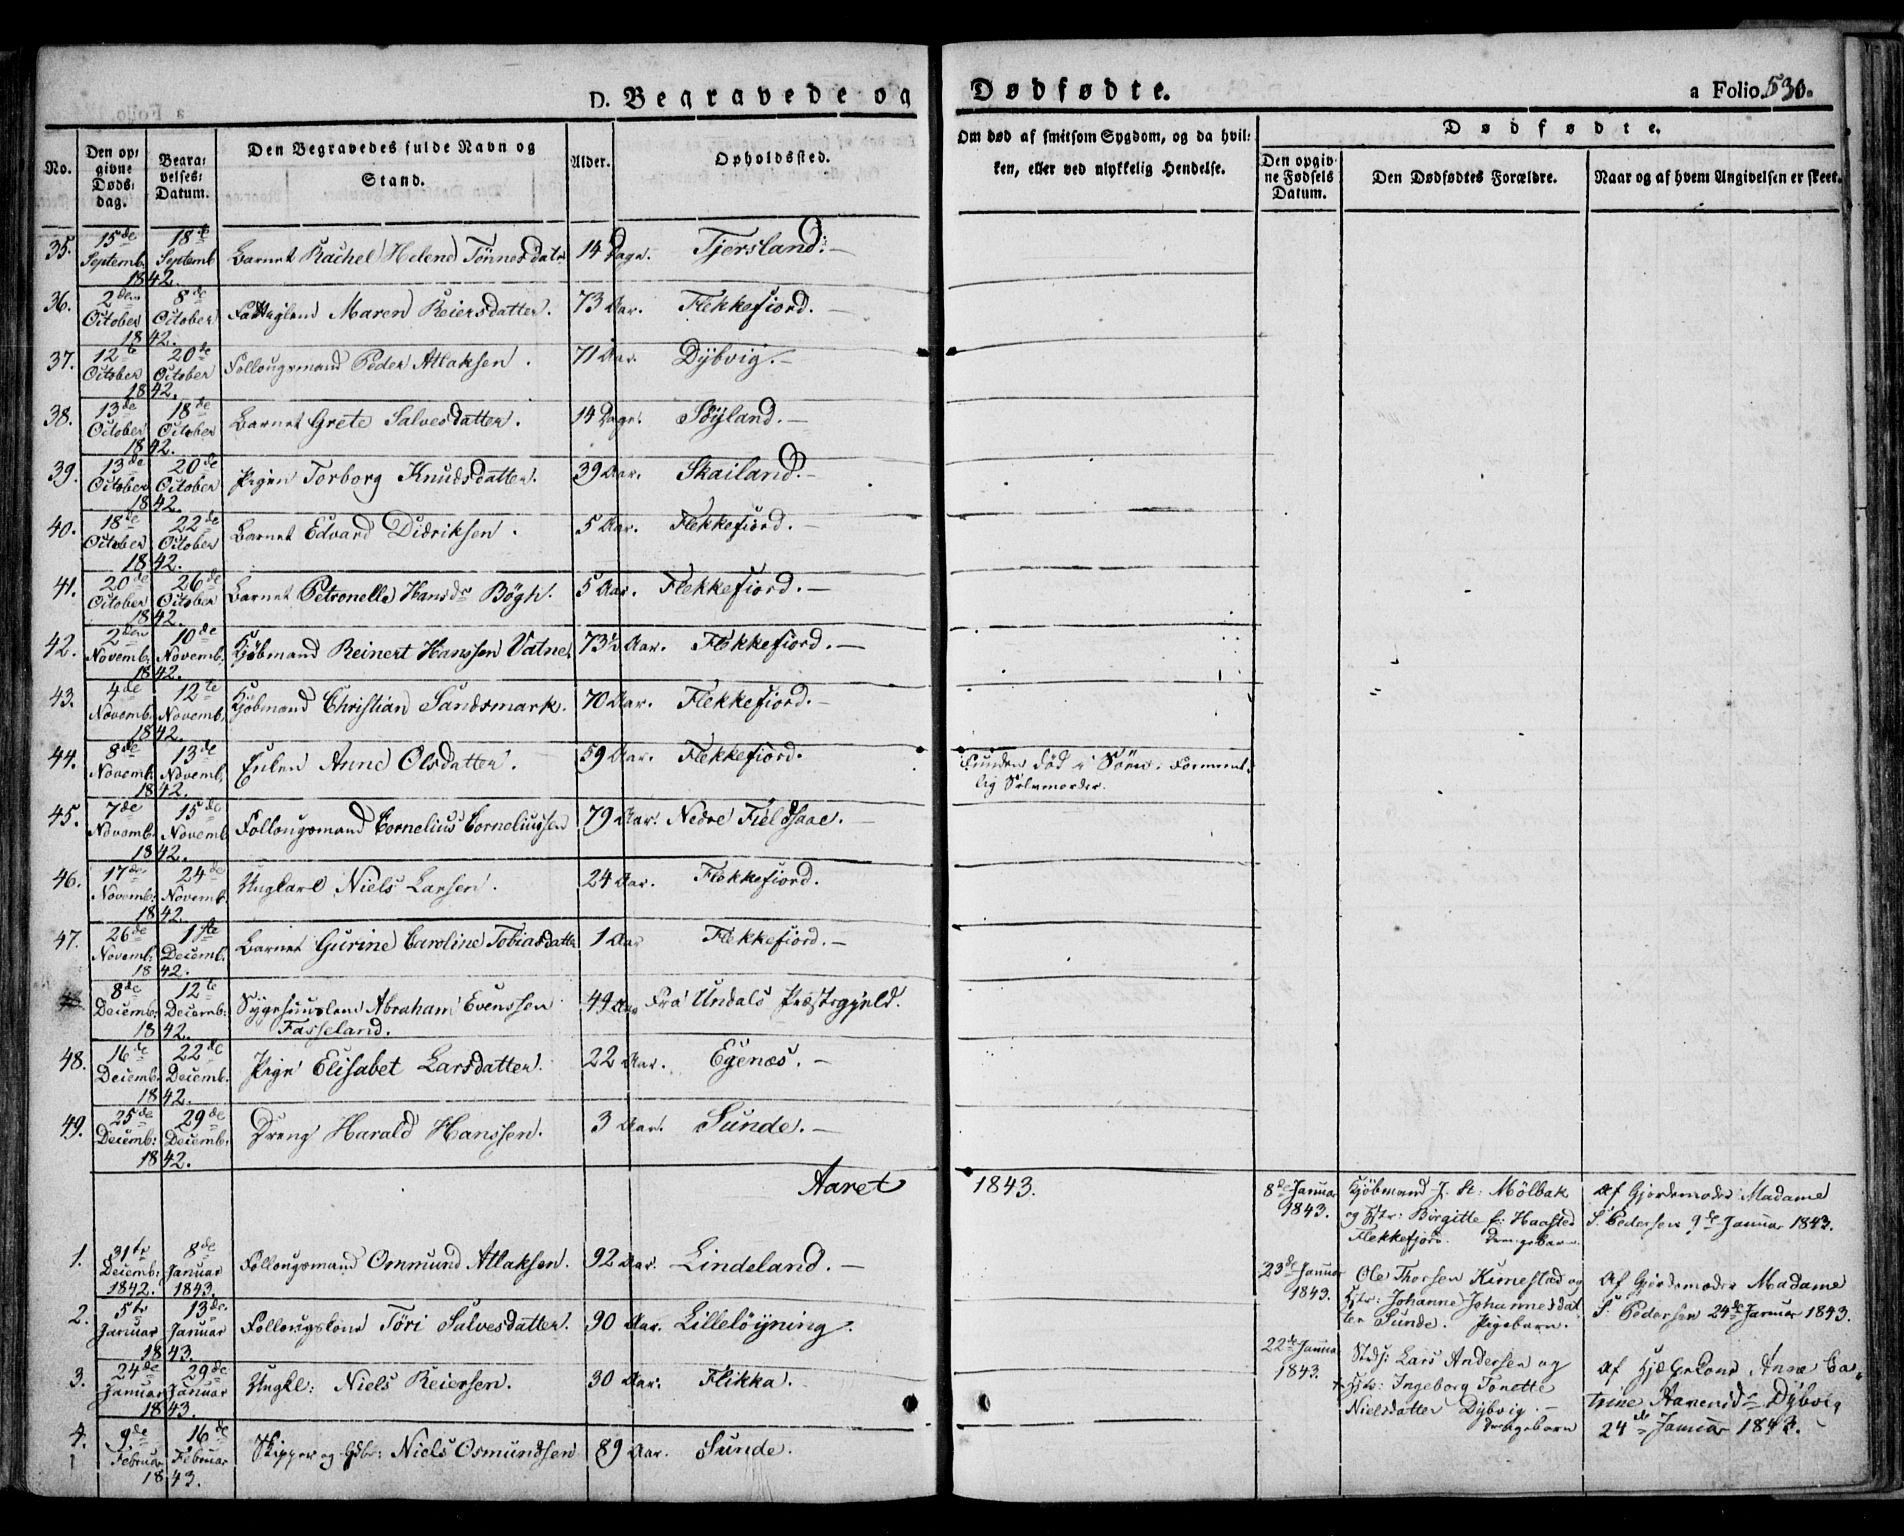 D. Begravede og Dødfødte. a Folio 530.
No. Den opgivne Døds dag. Begravelses Datum. Den Begravedes fulde Navn og Stand. Alder. Opholdssted. Om død af smitsom Sygdom, og da hvilken, eller ved ulykkelig Hendelse.
Dødfødte.
Den opgivne Fødsels Datum. Den Dødfødtes Forældre. Naar og af hvem Angivelsen er skeet.
35. 15de Septemb. 18de Septemb. 1842. Barnet Rachel Helene Tønnesdatr 14 Dage. Tjersland.
36. 2den October 8de October 1842. Fattiglem Maren Reiersdatter. 73 Aar. Flekkefiord.
37. 12te October 20de October 1842. Follougsmand Peder Atlaksen. 71 Aar. Dÿbvig.
38. 13de October 18de October 1842. Barnet Grete Salvesdatter. 14 Dage. Søÿland.
39. 13de October 20de October 1842. Pigen Torborg Knudsdatter. 39 Aar. Skailand.
40. 18de October 22de October 1842. Barnet Edvard Didriksen. 5 Aar. Flekkefiord.
41. 20de October 26de October 1842. Barnet Petronelle Hansdr Bögh. 5 Aar. Flekkefiord.
42. 2den Novemb: 10de Novemb: 1842. Kjøbmand Reinert Hanssen Vatne. 73½ Aar. Flekkefiord.
43. 4de Novemb: 12te Novemb: 1842. Kjøbmand Christian Sandsmark. 70 Aar. Flekkefiord.
44. 8de Novemb. 13de Novemb. 1842. Enken Anne Olsdatter. 59 Aar. Flekkefiord. Funden død i Søen. Forment-
lig Selvmorder.
45. 7de Novemb: 15de Novemb 1842. Follougsmand Cornelius Corneliussen 79 Aar. Nedre Fieldsaae.
46. 17de Novemb: 24de Novemb. 1842. Ungkarl Niels Larsen. 24 Aar. Flekkefiord.
47. 26de Novemb: 1ste Decemb. 1842. Barnet Gurine Caroline Tobiasdatter 1 Aar Flekkefiord.
8de Decemb: 12te Decemb: 1842. Sygehuuslem Abraham Evenssen 49 Aar Fra Undals Præstegjeld.
Fasseland.
48. 16de Decemb. 22de Decemb. 1842. Pige Elisabet Larsdatter. 22 Aar. Egenæs.
49. 25de Decemb: 29de Decemb: 1842. Dreng Harald Hanssen. 3 Aar. Sunde.
Aaret 1843.
8de Januar 1843. Kjøbmand J. St: Mölbak
og Hstr: Birgitte f: Haasted
Flekkefjord. Drengebarn.
Af Gjordemoder Madame
S. Pedersen 9de Januar 1843.
1. 31te Decemb: 1842. 8de Januar 1843. Follougsmand Ommund Atlaksen. 92 Aar. Lindeland.
23de Januar 1843. Ole Thorsen Kimestad og
Hstr: Johanne Johannesdat
ter Sunde. Pigebarn.
Af Gjordemoder Madame
S. Pedersen 24de Januar 1843.
2. 5te Januar 13de Januar 1843. Follougskone Töri Salvesdatter. 90 Aar. Lilleløÿning.
22de Januar 1843. Lars Andersen og
Hstr: Ingeborg Tonette
Nielsdatter Dÿbvig.
Drengebarn
Af Anne Ca-
trine Aanensdr Dÿbvig
24de Januar 1843.
3. 24de Januar 29de Januar 1843. Ungkl: Niels Reiersen. 30 Aar. Flikka.
4. 9de Februar 16de Februar 1843. Skipper og Gdbr: Niels Osmundsen 89 Aar. Sunde.